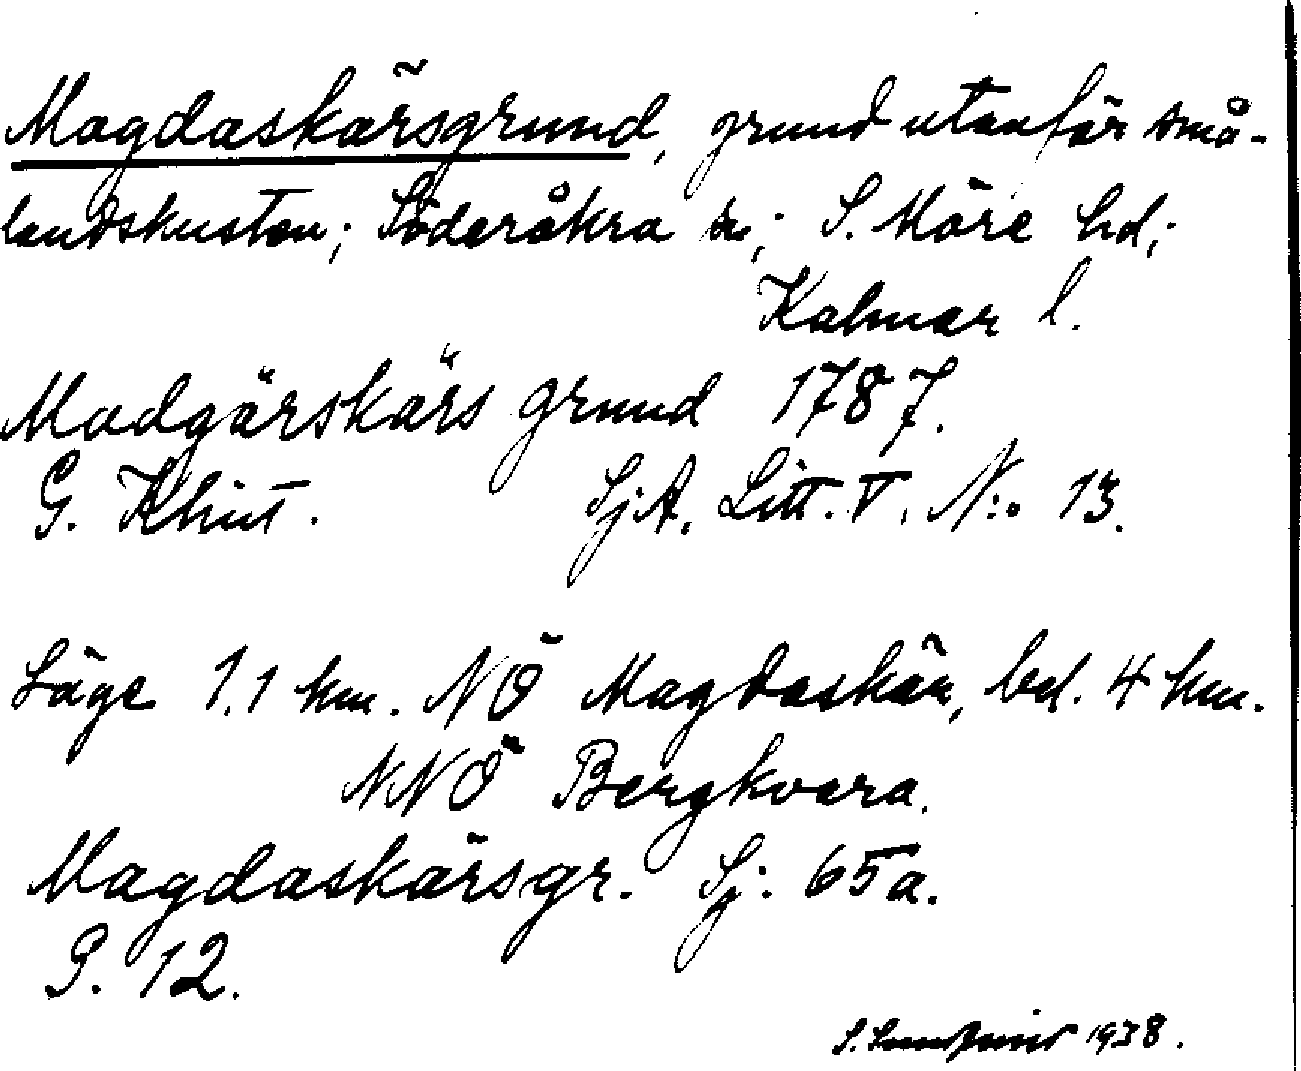 Magdaskärsgrund, grund utanför små-
landskusten; Söderåkra sn; S. Möre hd;
Kalmar l.
Madgärskärs grund 1787.
G. Klint. SjA. Litt. V. N:o 13.
Läge 1,1 km. NÖ Magdaskär, bel. 4 km.
NNÖ Bergkvara.
Magdaskärsgr. Sj. 65a.
G. 12.
S. 1938.